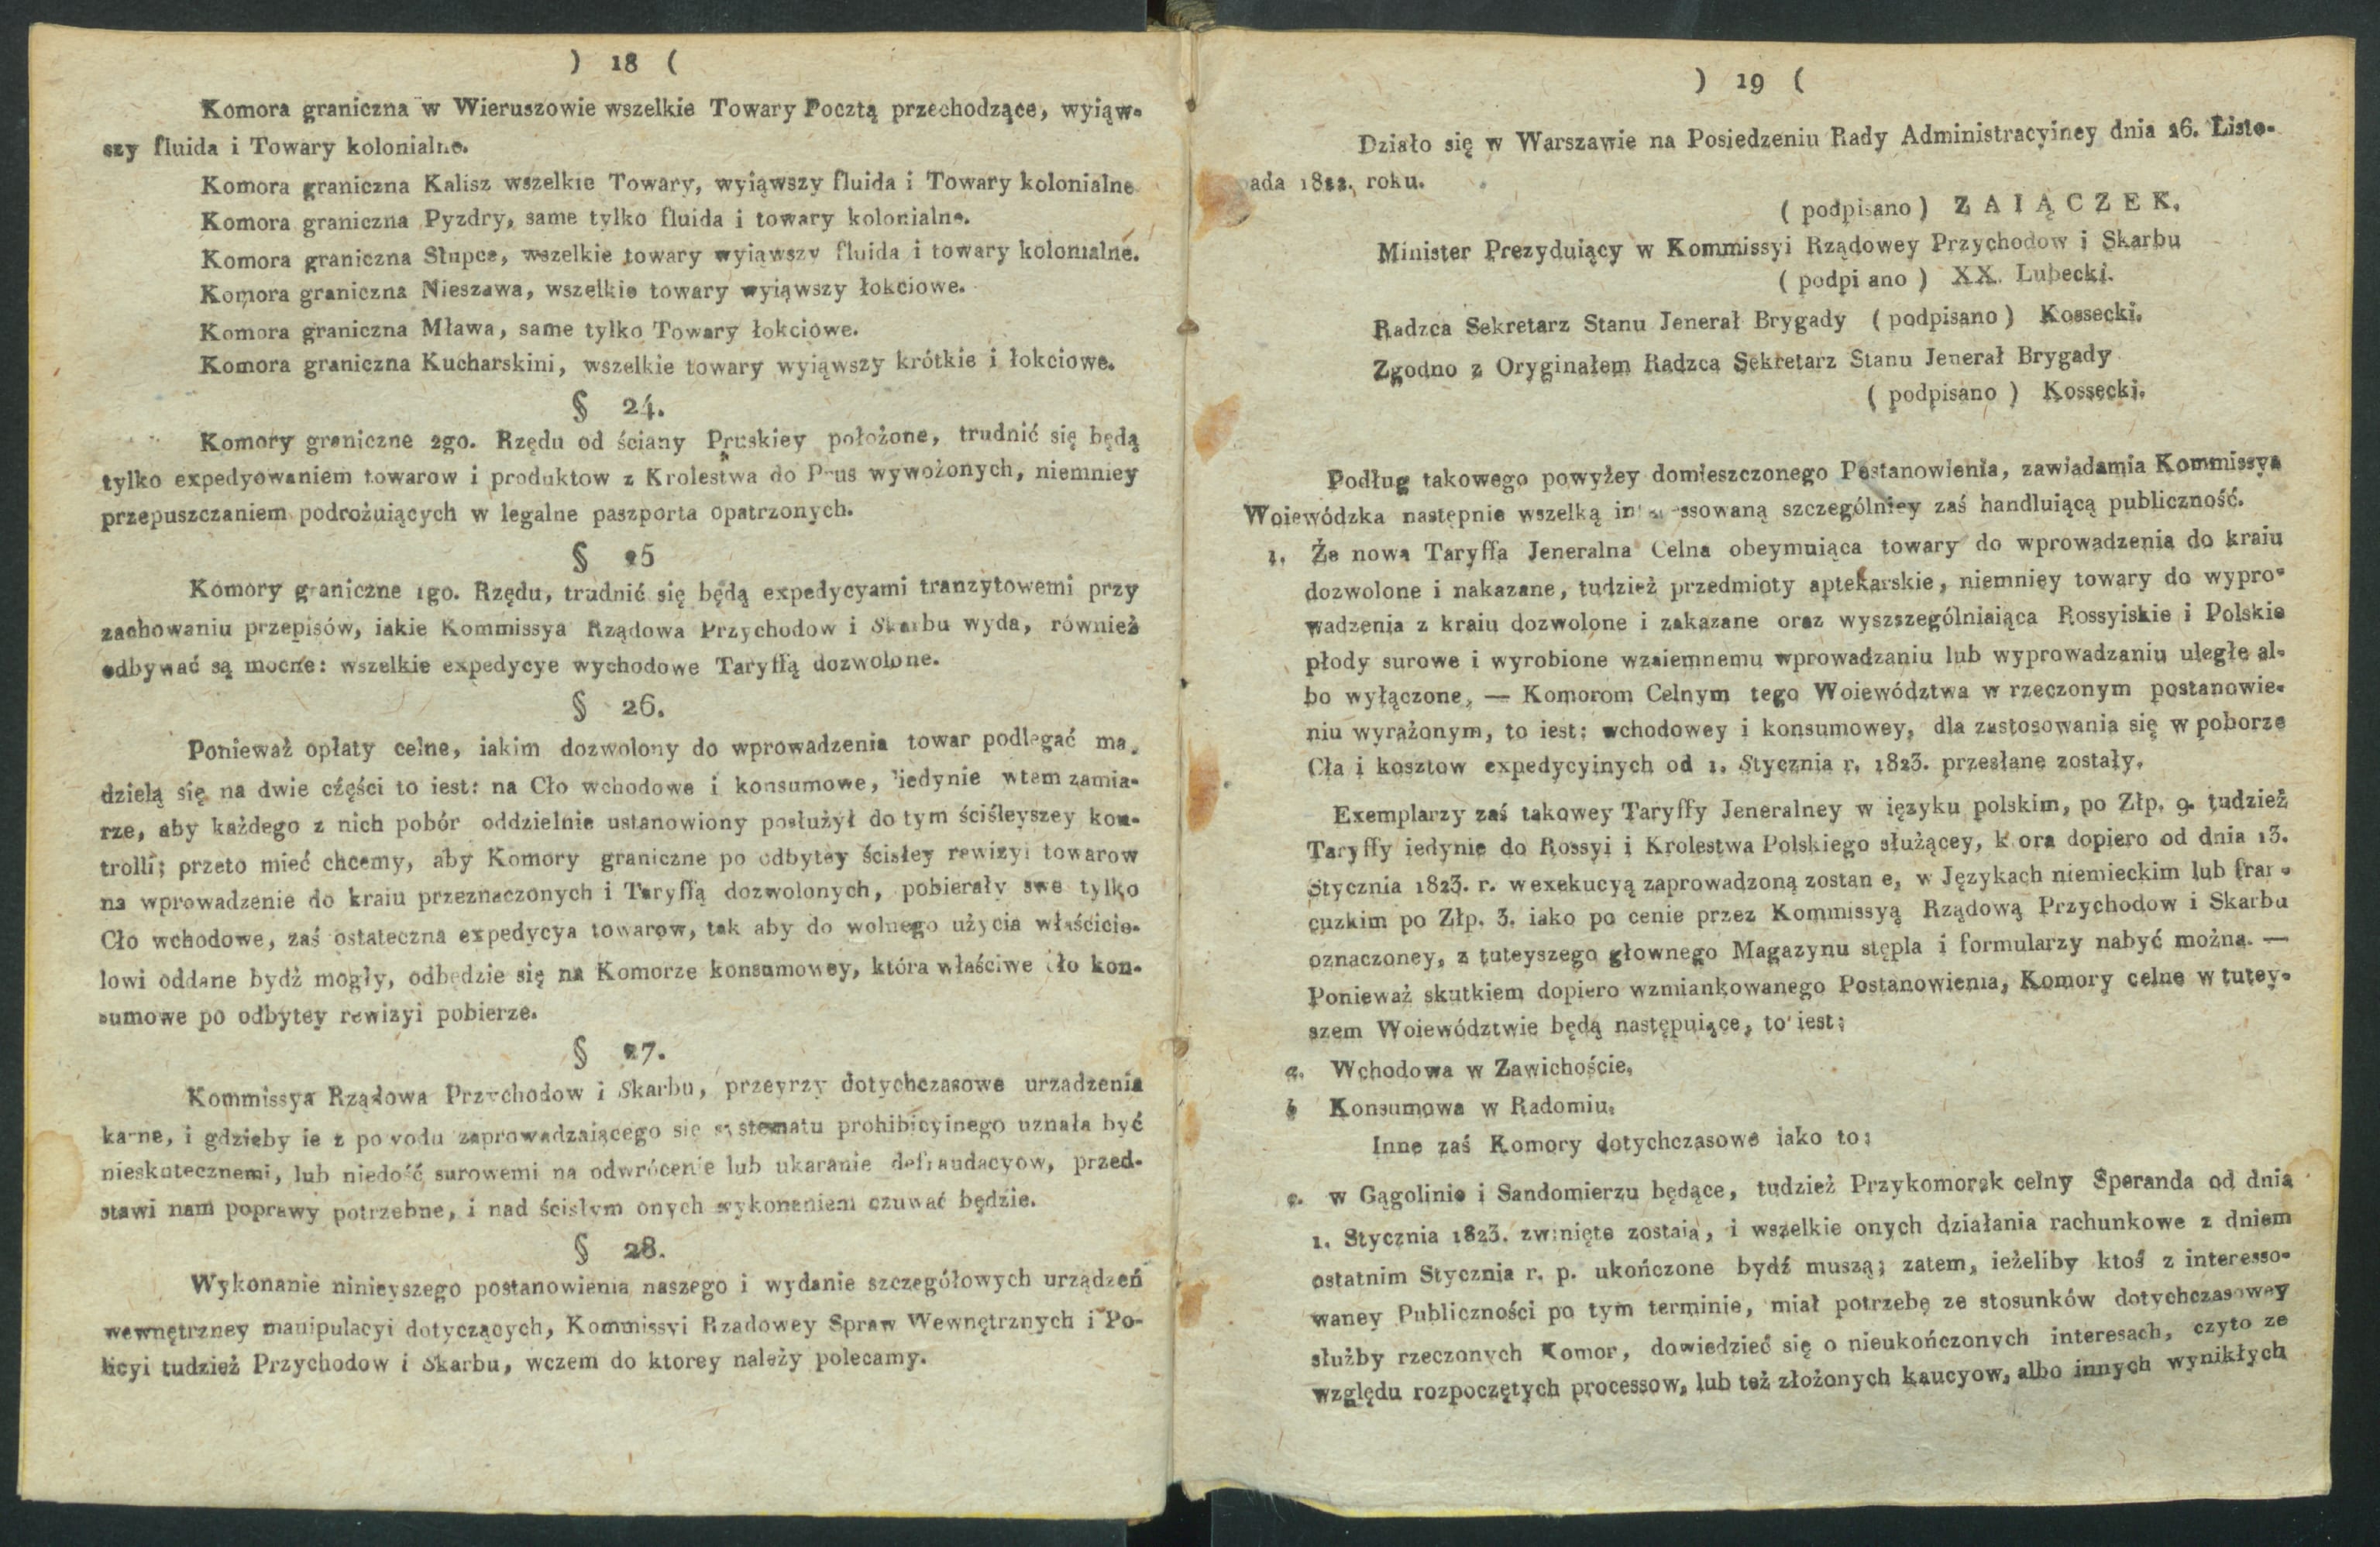 ) 18 (
Komora graniczna w Wieruszowie wszelkie Towary Pocztą przechodzące, wyiąw-
szy fluida i Towary kolonialne.
Komora graniczna Kalisz wszelkie Towary, wyiąwszy fluida i Towary kolonialne
Komora graniczna Pyzdry, same tylko fluida i towary kolonialne.
Komora graniczna Słupce, wszelkie towary wyiąwszy fluida i towary kolonialne.
Komora graniczna Nieszawa, wszelkie towary wyiąwszy łokciowe.
Komora graniczna Mława, same tylko Towary łokciowe.
Komora graniczna Kucharskini, wszelkie towary wyiąwszy krótkie i łokciowe.
§ 24.
Komory graniczne 2go. Rzędu od ściany Pruskiey położone, trudnić się będą
tylko expedyowaniem towarow i produktow z Krolestwa do Prus wywożonych, niemniey
przepuszczaniem podrożuiących w legalne paszporta opatrzonych.
§ 25
Komory graniczne 1go. Rzędu, trudnić się będą expedycyami tranzytowemi przy
zachowaniu przepisów, iakie Kommissya Rządowa Przychodow i Skarbu wyda, również
odbywać są mocne: wszelkie expedycye wychodowe Taryffą dozwolone.
§ 26.
Ponieważ opłaty celne, iakim dozwolony do wprowadzenia towar podlegać ma,
dzielą się na dwie części to iest: na Cło wchodowe i konsumowe, iedynie wtem zamia-
rze, aby każdego z nich pobór oddzielnie ustanowiony posłużył do tym ściśleyszey kon-
trolli; przeto mieć chcemy, aby Komory graniczne po odbytey ścisłey rewizyi towarow
na wprowadzenie do kraiu przeznaczonych i Taryffą dozwolonych, pobierały swe tylko
Cło wchodowe, zaś ostateczna expedycya towarow, tak aby do wolnego użycia właścicie-
lowi oddane bydź mogły, odbędzie się na Komorze konsumowey, która właściwe Cło kon-
sumowe po odbytey rewizyi pobierze.
§ 27.
Kommissya Rządowa Przychodow i Skarbu, przeyrzy dotychczasowe urzadzenia
karne, i gdzieby ie z powodu zaprowadzaiącego się systematu prohibicyinego uznała być
nieskutecznemi, lub niedość surowemi na odwrócenie lub ukaranie defraudacyow, przed-
stawi nam poprawy potrzebne, i nad ścisłym onych wykonaniem czuwać będzie.
§ 28.
Wykonanie ninieyszego postanowienia naszego i wydanie szczegółowych urządzeń
wewnętrzney manipulacyi dotyczących, Kommissyi Rzadowey Spraw Wewnętrznych i Po-
licyi tudzież Przychodow i Skarbu, wczem do ktorey należy polecamy.
) 19 (
Działo się w Warszawie na Posiedzeniu Rady Administracyiney dnia 26. Listo-
pada 1822. roku.
( podpisano ) ZAIĄCZEK.
Minister Prezyduiący w Kommissyi Rządowey Przychodow i Skarbu
( podpi ano ) XX. Lubecki.
Radzca Sekretarz Stanu Jenerał Brygady ( podpisano ) Kossecki.
Zgodno z Oryginałem Radzca Sekretarz Stanu Jenerał Brygady
( podpisano ) Kossecki.
Podług takowego powyżey domieszczonego Postanowienia, zawiadamia Kommissya
Woiewódzka następnie wszelką interessowaną szczególniey zaś handluiącą publiczność.
1. Że nowa Taryffa Jeneralna Celna obeymuiąca towary do wprowadzenia do kraiu
dozwolone i nakazane, tudzież przedmioty aptekarskie, niemniey towary do wypro-
wadzenia z kraiu dozwolone i zakazane oraz wyszszególniaiąca Rossyiskie i Polskie
płody surowe i wyrobione wzaiemnemu wprowadzaniu lub wyprowadzaniu uległe al-
bo wyłączone, — Komorom Celnym tego Woiewództwa w rzeczonym postanowie-
niu wyrażonym, to iest: wchodowey i konsumowey, dla zastosowania się w poborze
Cła i kosztow expedycyinych od 1. Stycznia r. 1823. przesłane zostały.
Exemplarzy zaś takowey Taryffy Jeneralney w ięzyku polskim, po Złp. 9. tudzież
Taryffy iedynie do Rossyi i Krolestwa Polskiego służącey, k ora dopiero od dnia 13.
Stycznia 1823. r. w exekucyą zaprowadzoną zostan e, w Językach niemieckim lub fran-
cuzkim po Złp. 3. iako po cenie przez Kommissyą Rządową Przychodow i Skarbu
oznaczoney, z tuteyszego głownego Magazynu stępla i formularzy nabyć można. —
Ponieważ skutkiem dopiero wzmiankowanego Postanowienia, Komory celne w tutey-
szem Woiewództwie będą następuiące, to iest:
a. Wchodowa w Zawichoście.
b Konsumowa w Radomiu.
Inne zaś Komory dotychczasowe iako to:
c. w Gągolinie i Sandomierzu będące, tudzież Przykomorek celny Speranda od dnia
1. Stycznia 1823. zwinięte zostaią, i wszelkie onych działania rachunkowe z dniem
ostatnim Stycznia r. p. ukończone bydź muszą; zatem, ieżeliby ktoś z interesso-
waney Publiczności po tym terminie, miał potrzebę ze stosunków dotychczasowey
służby rzeczonych Komor, dowiedzieć się o nieukończonych interesach, czyto ze
względu rozpoczętych processow, lub też złożonych kaucyow, albo innych wynikłych